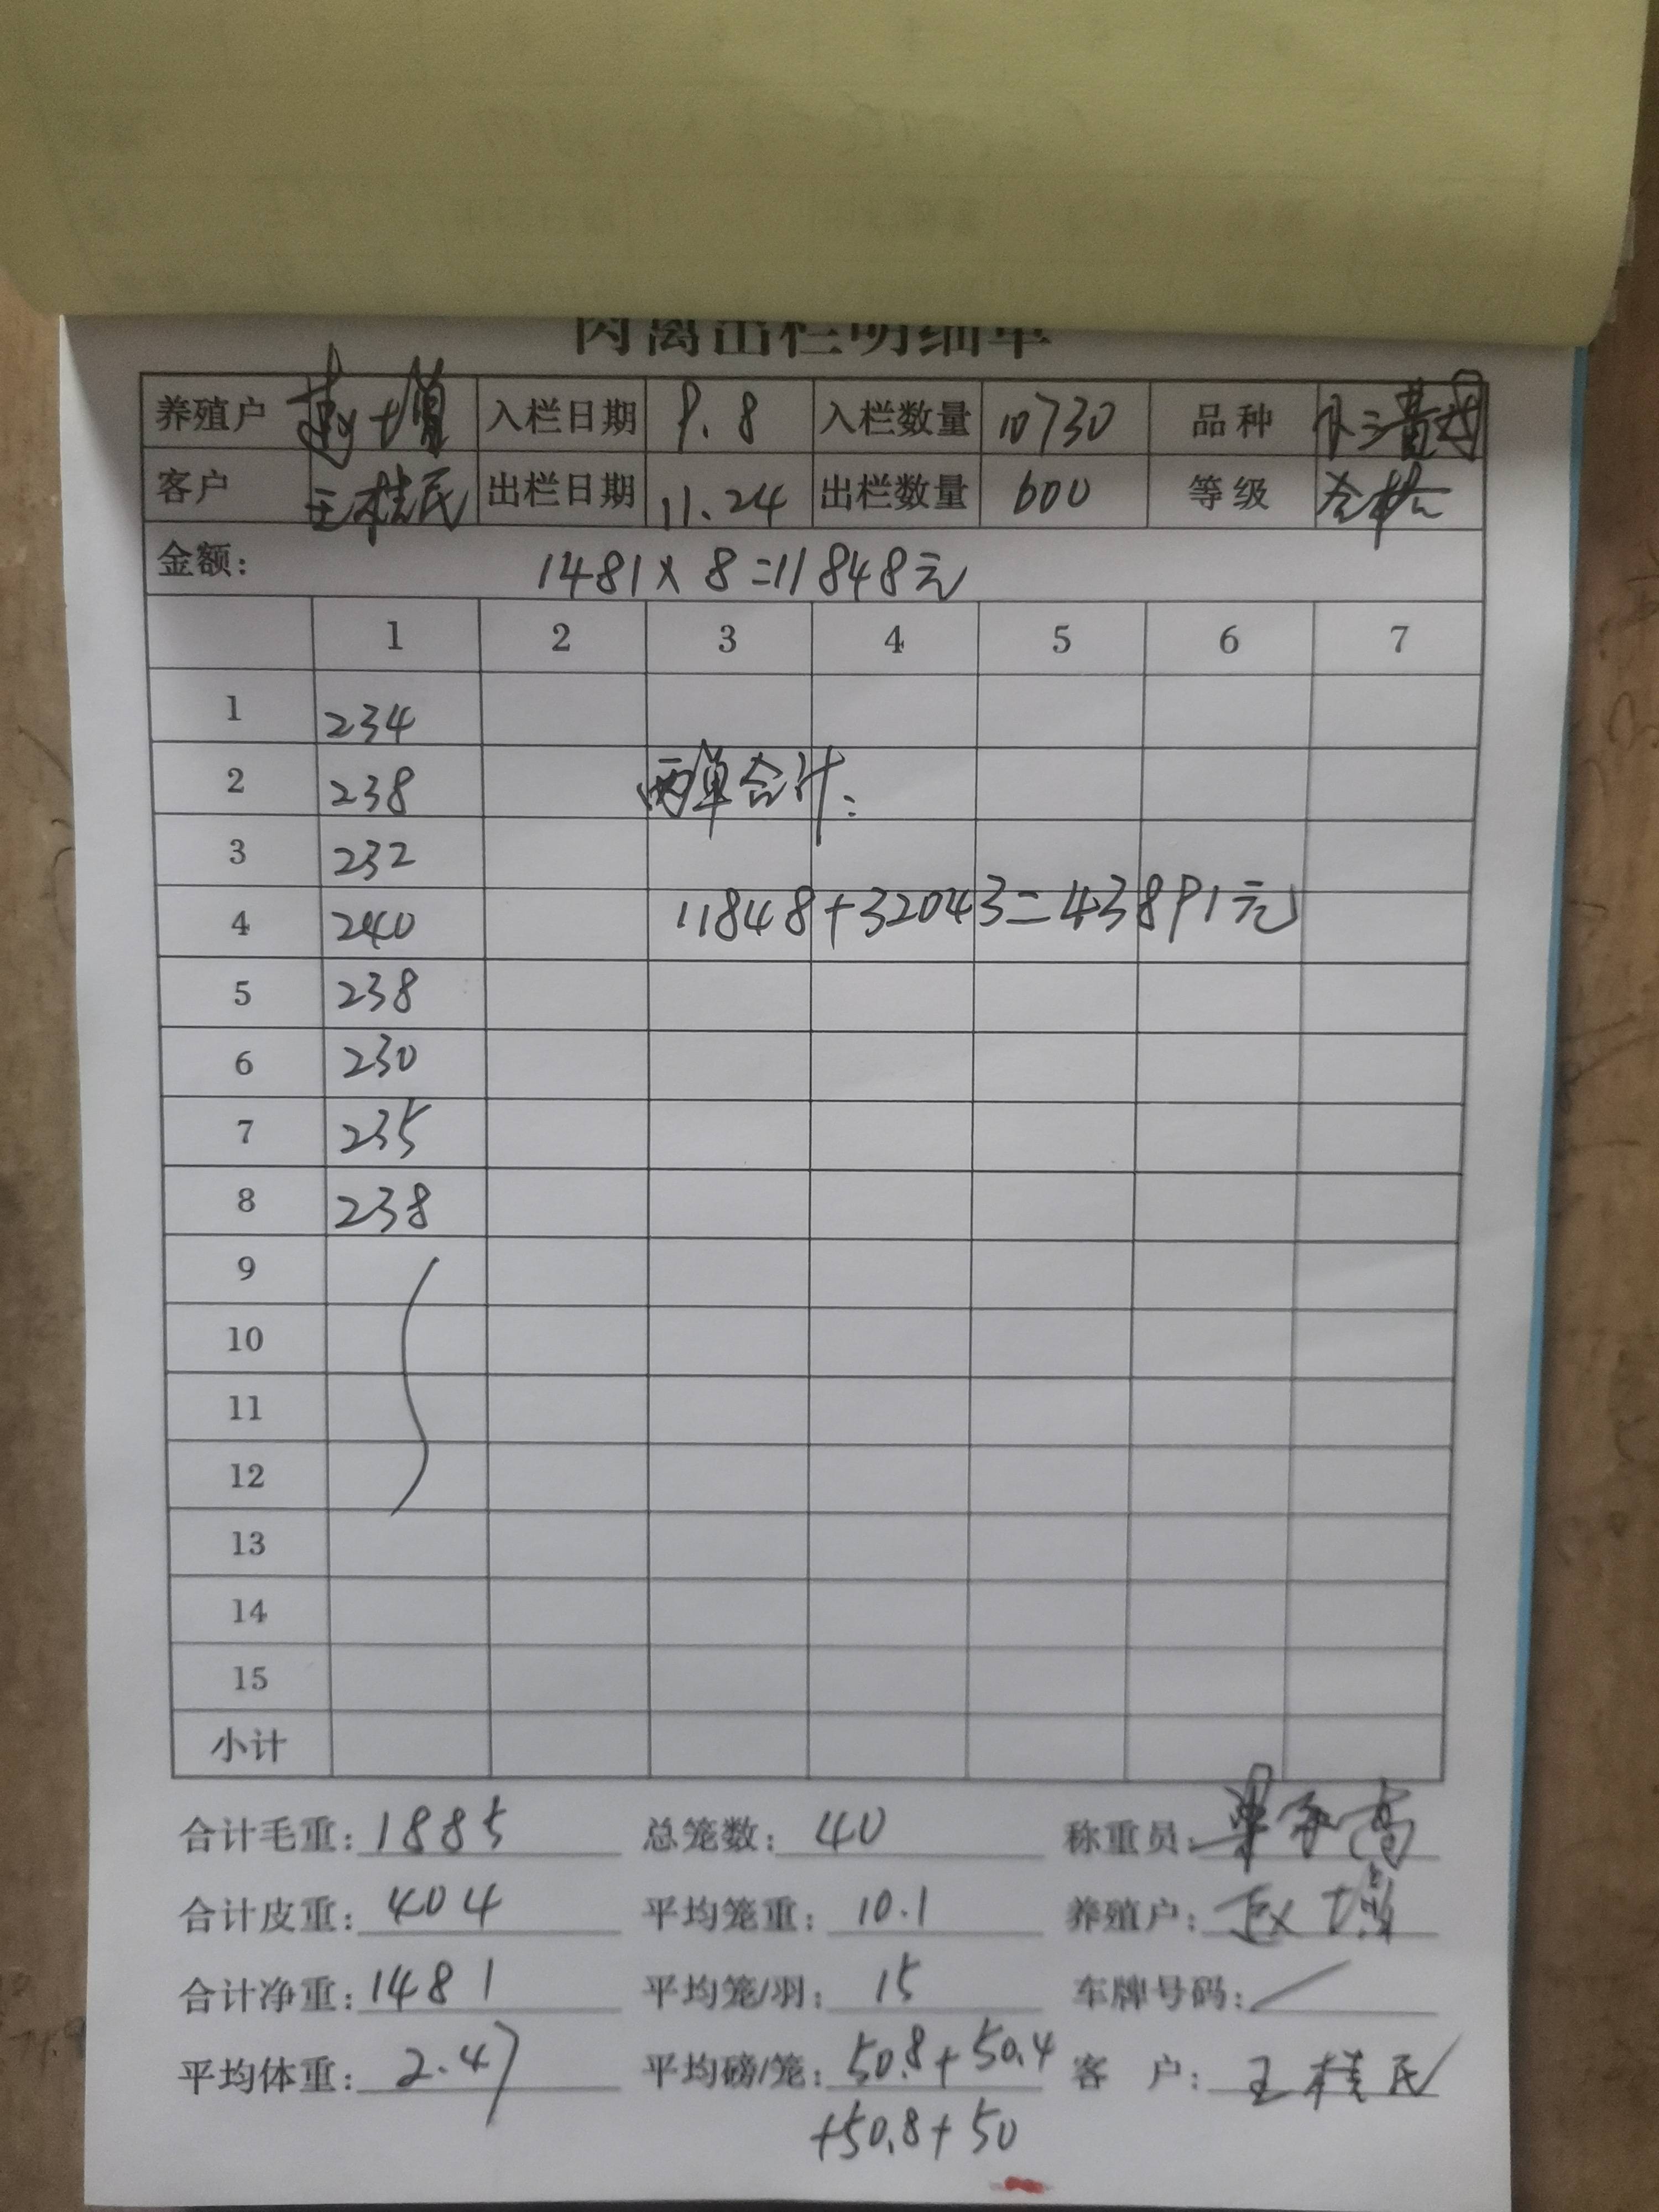 肉禽出栏明细单
养殖户 赵增 入栏日期 9.8 入栏数量 10730 品种
客户 王桂民 出栏日期 11.24 出栏数量 600 等级
金额: 1481×8=11848元
1 2 3 4 5 6 7
1 234
2 238 两单合计:
3 232
4 240 11848+32043=43891元
5 238
6 230
7 235
8 238
9
10
11
12
13
14
15
小计
合计毛重: 1885 总笼数: 40 称重员:
合计皮重: 404 平均笼重: 10.1 养殖户: 赵增
合计净重: 1481 平均笼/羽: 15 车牌号码: /
平均体重: 2.47 平均磅/笼: 50.8+50.4 客户: 王桂民
+50.8+50